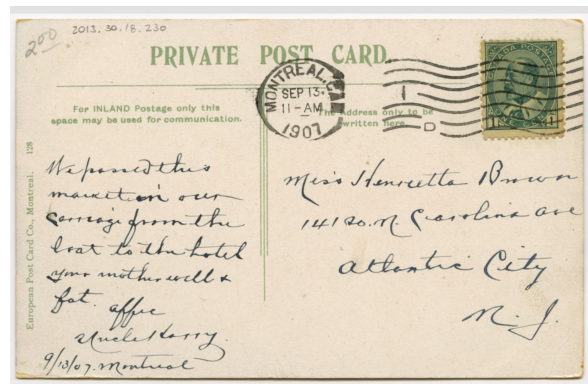 2013.30.18.230
2.00
PRIVATE POST CARD.
MONTREAL, CAN
SEP 13.
11-AM
1907
1
D
CANADA POSTAGE
1 1
For INLAND Postage only this
space may be used for communication.
The Address only to be
written here.
European Post Card Co., Montreal. 128
We passed this
market in our
carriage from the
boat to the hotel
your mother well &
fat. affec
Uncle Harry.
9/13/07. Montreal
Miss Henrietta Brown
141 So. N. Carolina ave
Atlantic City
N. J.